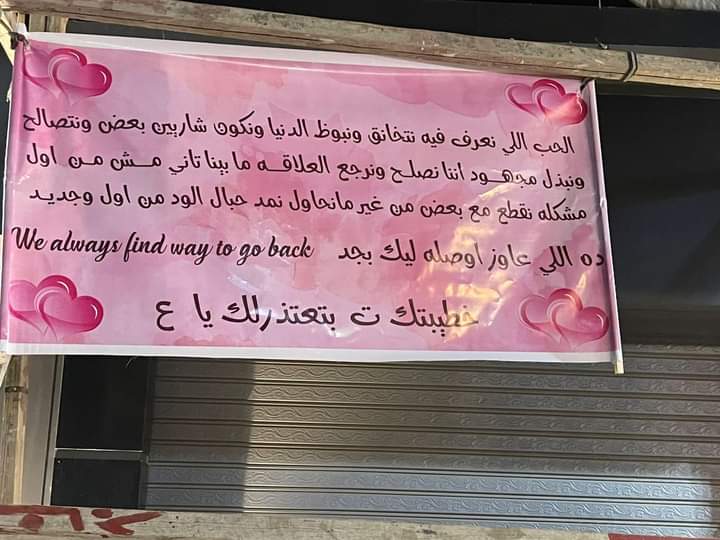 الحب اللي نعرف فيه نتخانق ونبوظ الدنيا ونكون شاريين بعض ونتصالح
ونبذل مجهود اننا نصلح ونرجع العلاقه ما بينا تاني مش من اول
مشكله نقطع مع بعض من غير مانحاول نمد حبال الود من اول وجديد
ده اللي عاوز اوصله ليك بجد We always find way to go back
خطيبتك ت بتعتذرلك يا ع